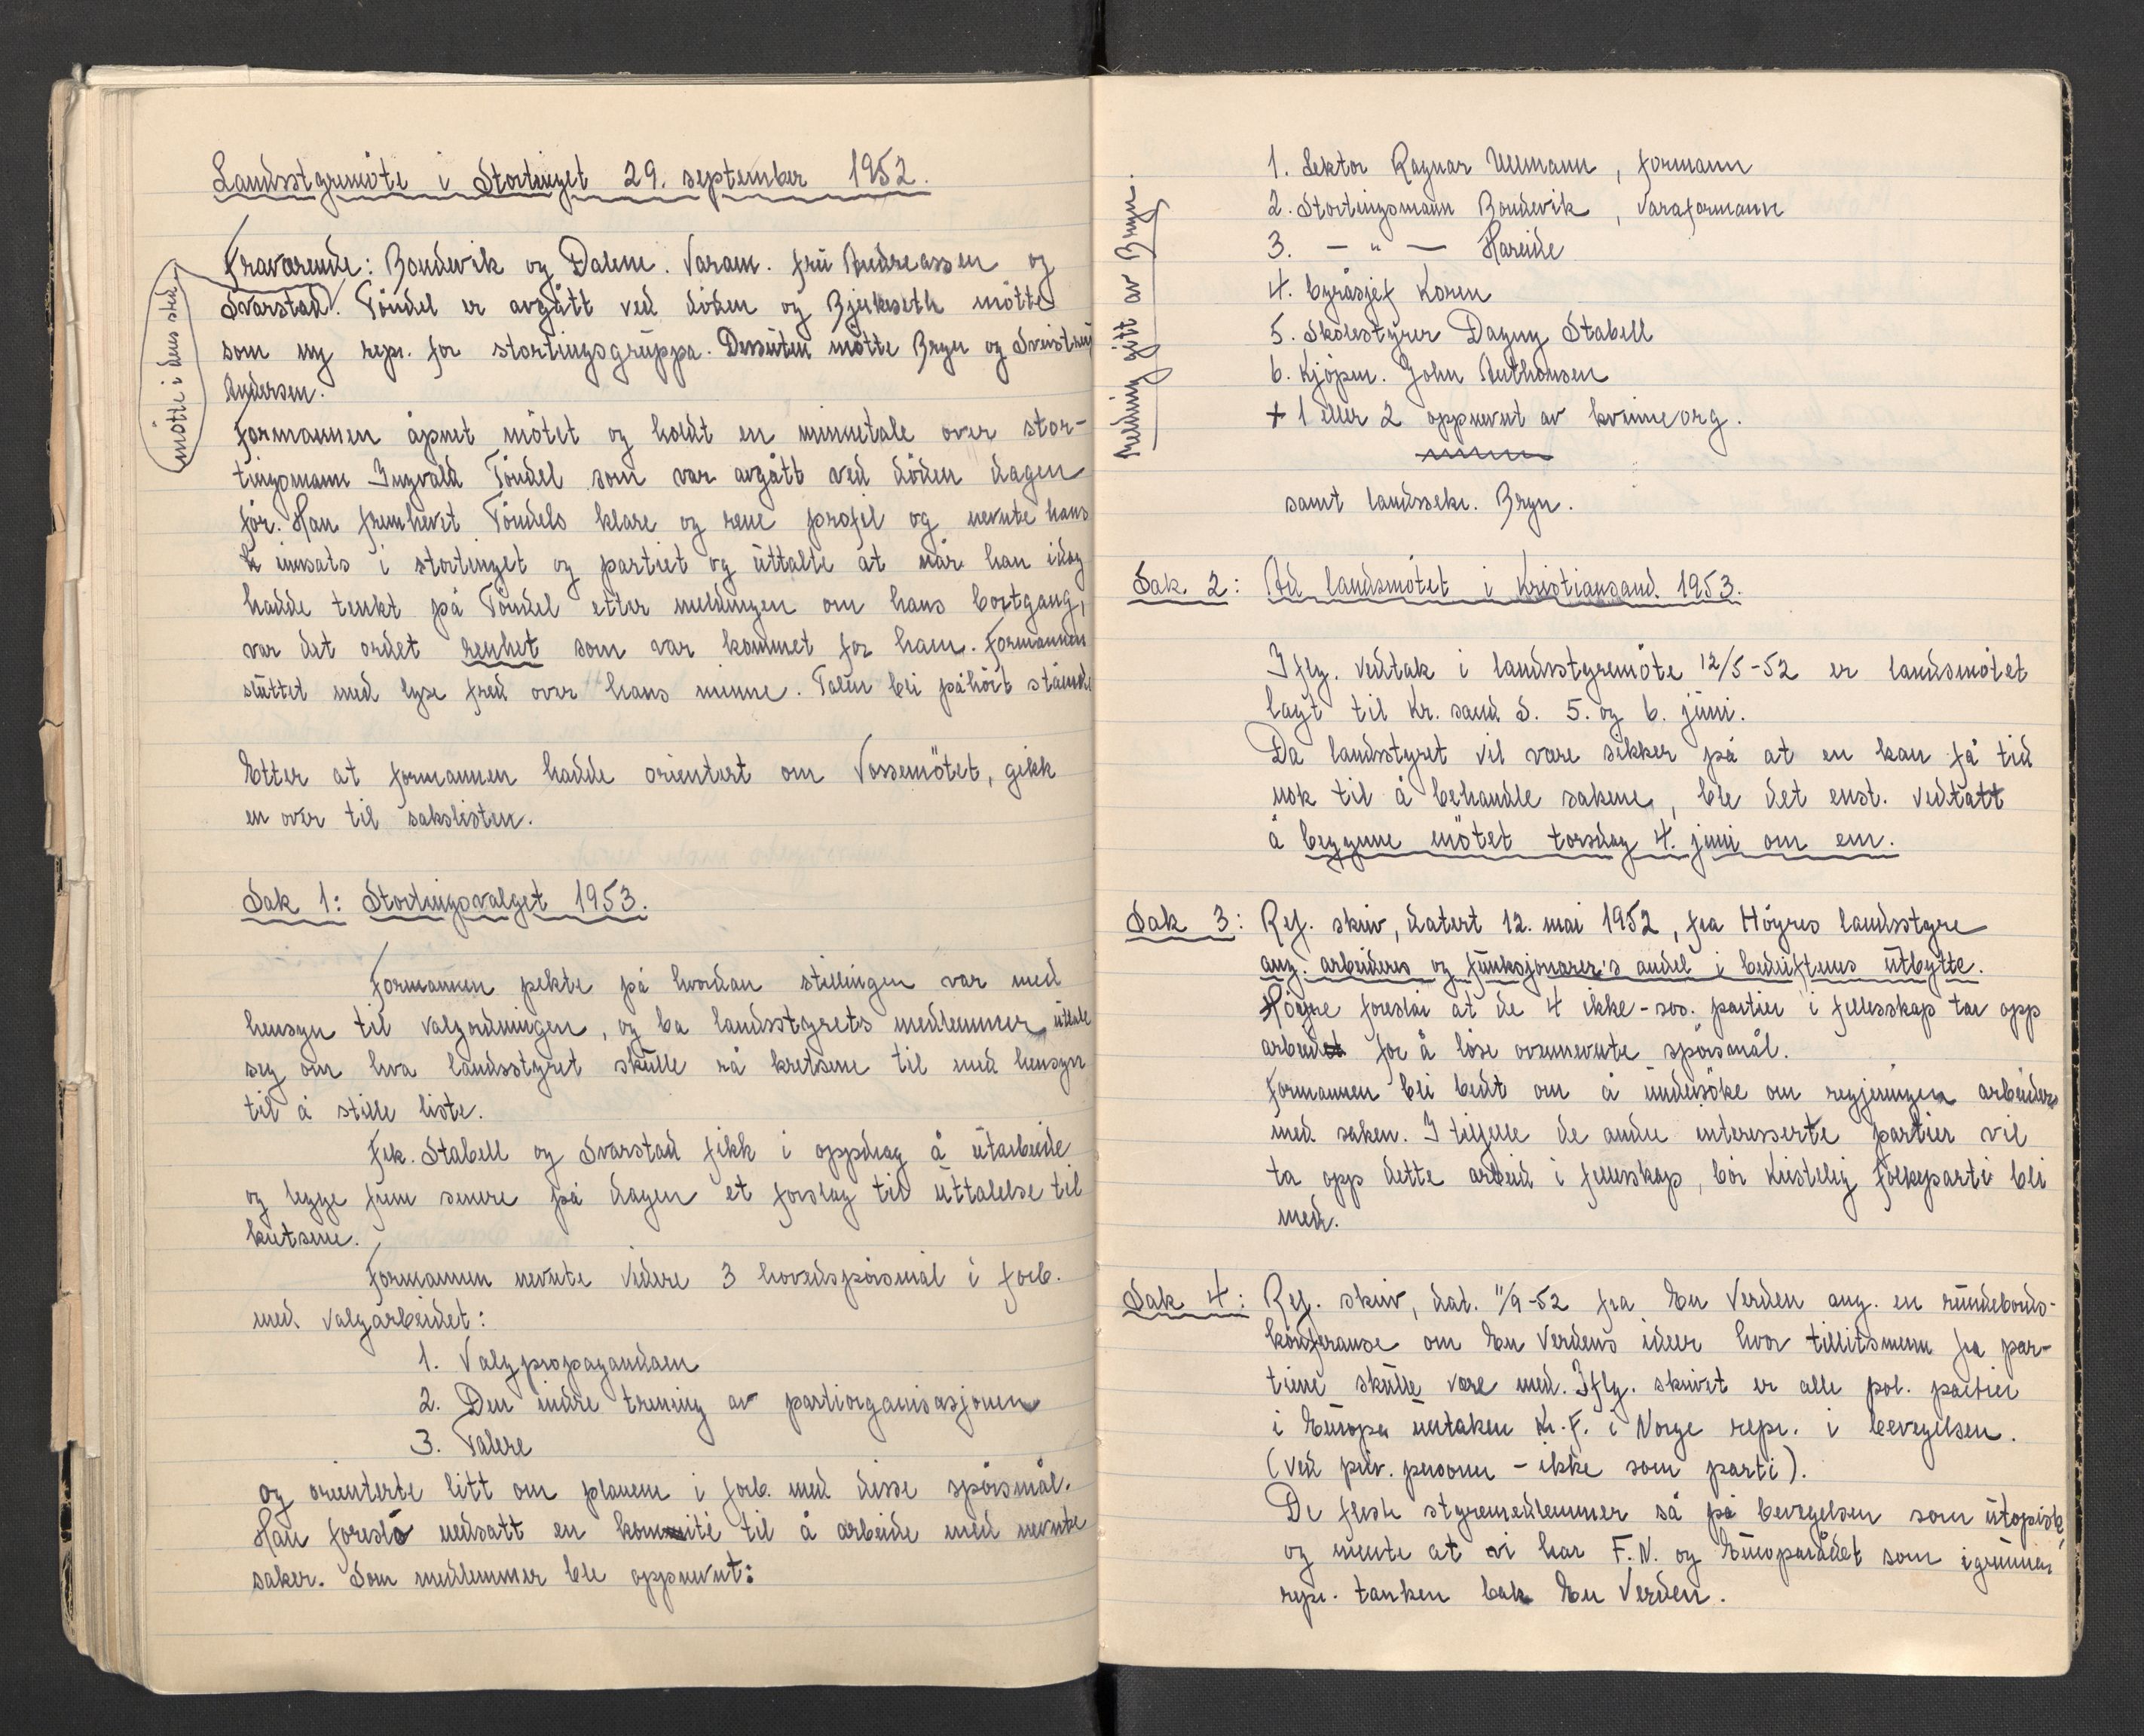 Landsstyremöte i Stortinget 29. september 1952.
Fraværende: Bondevik og Dalene. Varam. fru Andreassen og
Svarstad. Töndel er avgått ved döden og Bjerkseth mötte
som ny repr. for stortingsgruppa. Dessuten mötte Bryn og
Andersen.
mötte i deres sted
Formannen åpnet mötet og holdt en minnetale over stor-
tingsmann Ingvald Töndel som var avgått ved döden dagen
för. Han fremhevet Töndels klare og rene profil og nevnte hans
innsats i stortinget og partiet og uttalte at når han idag
hadde tenkt på Töndel etter meldingen om hans bortgang,
var det ordet renhet som var kommet for ham. Formannen
sluttet med lyse fred over hans minne. Talen blei påhört stående
Etter at formannen hadde orientert om Vossemötet, gikk
en over til sakslisten.
Sak 1: Stortingsvalget 1953.
Formannen pekte på hvordan stillingen var med
hensyn til valgordningen, og ba landsstyrets medlemmer uttale
seg om hva landsstyret skulle rå kretsene til med hensyn
til å stille liste.
Frk. Stabell og Svarstad fikk i oppdrag å utarbeide
og legge frem senere på dagen et forslag til uttalelse til
kretsene.
Formannen nevnte videre 3 hovedspörsmål i forb.
med valgarbeidet:
1. Valgpropagandaen
2. Den indre trening av partiorganisasjonen
3. Talere
og orienterte litt om planene i forb. med disse spörsmål.
Han foreslo nedsatt en komite til å arbeide med nevnte
saker. Som medlemmer ble oppnevnt:
Melding gitt av Bryn.
1. Lektor Ragnar Ullmann, formann
2. Stortingsmann Bondevik, varaformann
3. — " — Hareide
4. byråsjef Koren
5. Skolestyrer Dagny Stabell
6. Kjöpm. John Anthonsen
+ 1 eller 2 oppnevnt av kvinneorg.
samt landssekr. Bryn.
Sak 2: Ad landsmötet i Kristiansand 1953.
Iflg. vedtak i landsstyremöte 12/5-52 er landsmötet
lagt til Kr.sand S. 5. og 6. juni.
Da landsstyret vil være sikker på at en kan få tid
nok til å behandle sakene, ble det enst. vedtatt
å begynne mötet torsdag 4. juni om em.
Sak 3: Ref. skriv, datert 12. mai 1952, fra Höyres landsstyre
ang. arbeideres og funksjonærer's andel i bedriftens utbytte.
Höyre foreslår at de 4 ikke-sos. partier i fellesskap tar opp
arbeid for å löse ovennevnte spörsmål.
Formannen blei bedt om å undersöke om regjeringen arbeider
med saken. I tilfelle de andre interesserte partier vil
ta opp dette arbeid i fellesskap, bör Kristelig Folkeparti bli
med.
Sak 4: Ref. skriv, dat. 11/9-52 fra En Verden ang. en rundebords-
konferanse om En Verdens ideer hvor tillitsmenn fra par-
tiene skulle være med. Iflg. skrivet er alle pol. partier
i Europa untaken Kr.F. i Norge repr. i bevegelsen.
(ved priv. personer - ikke som parti).
De fleste styremedlemmer så på bevegelsen som utopisk,
og mente at vi har F.N. og Europarådet som igrunnen
repr. tanken bak En Verden.